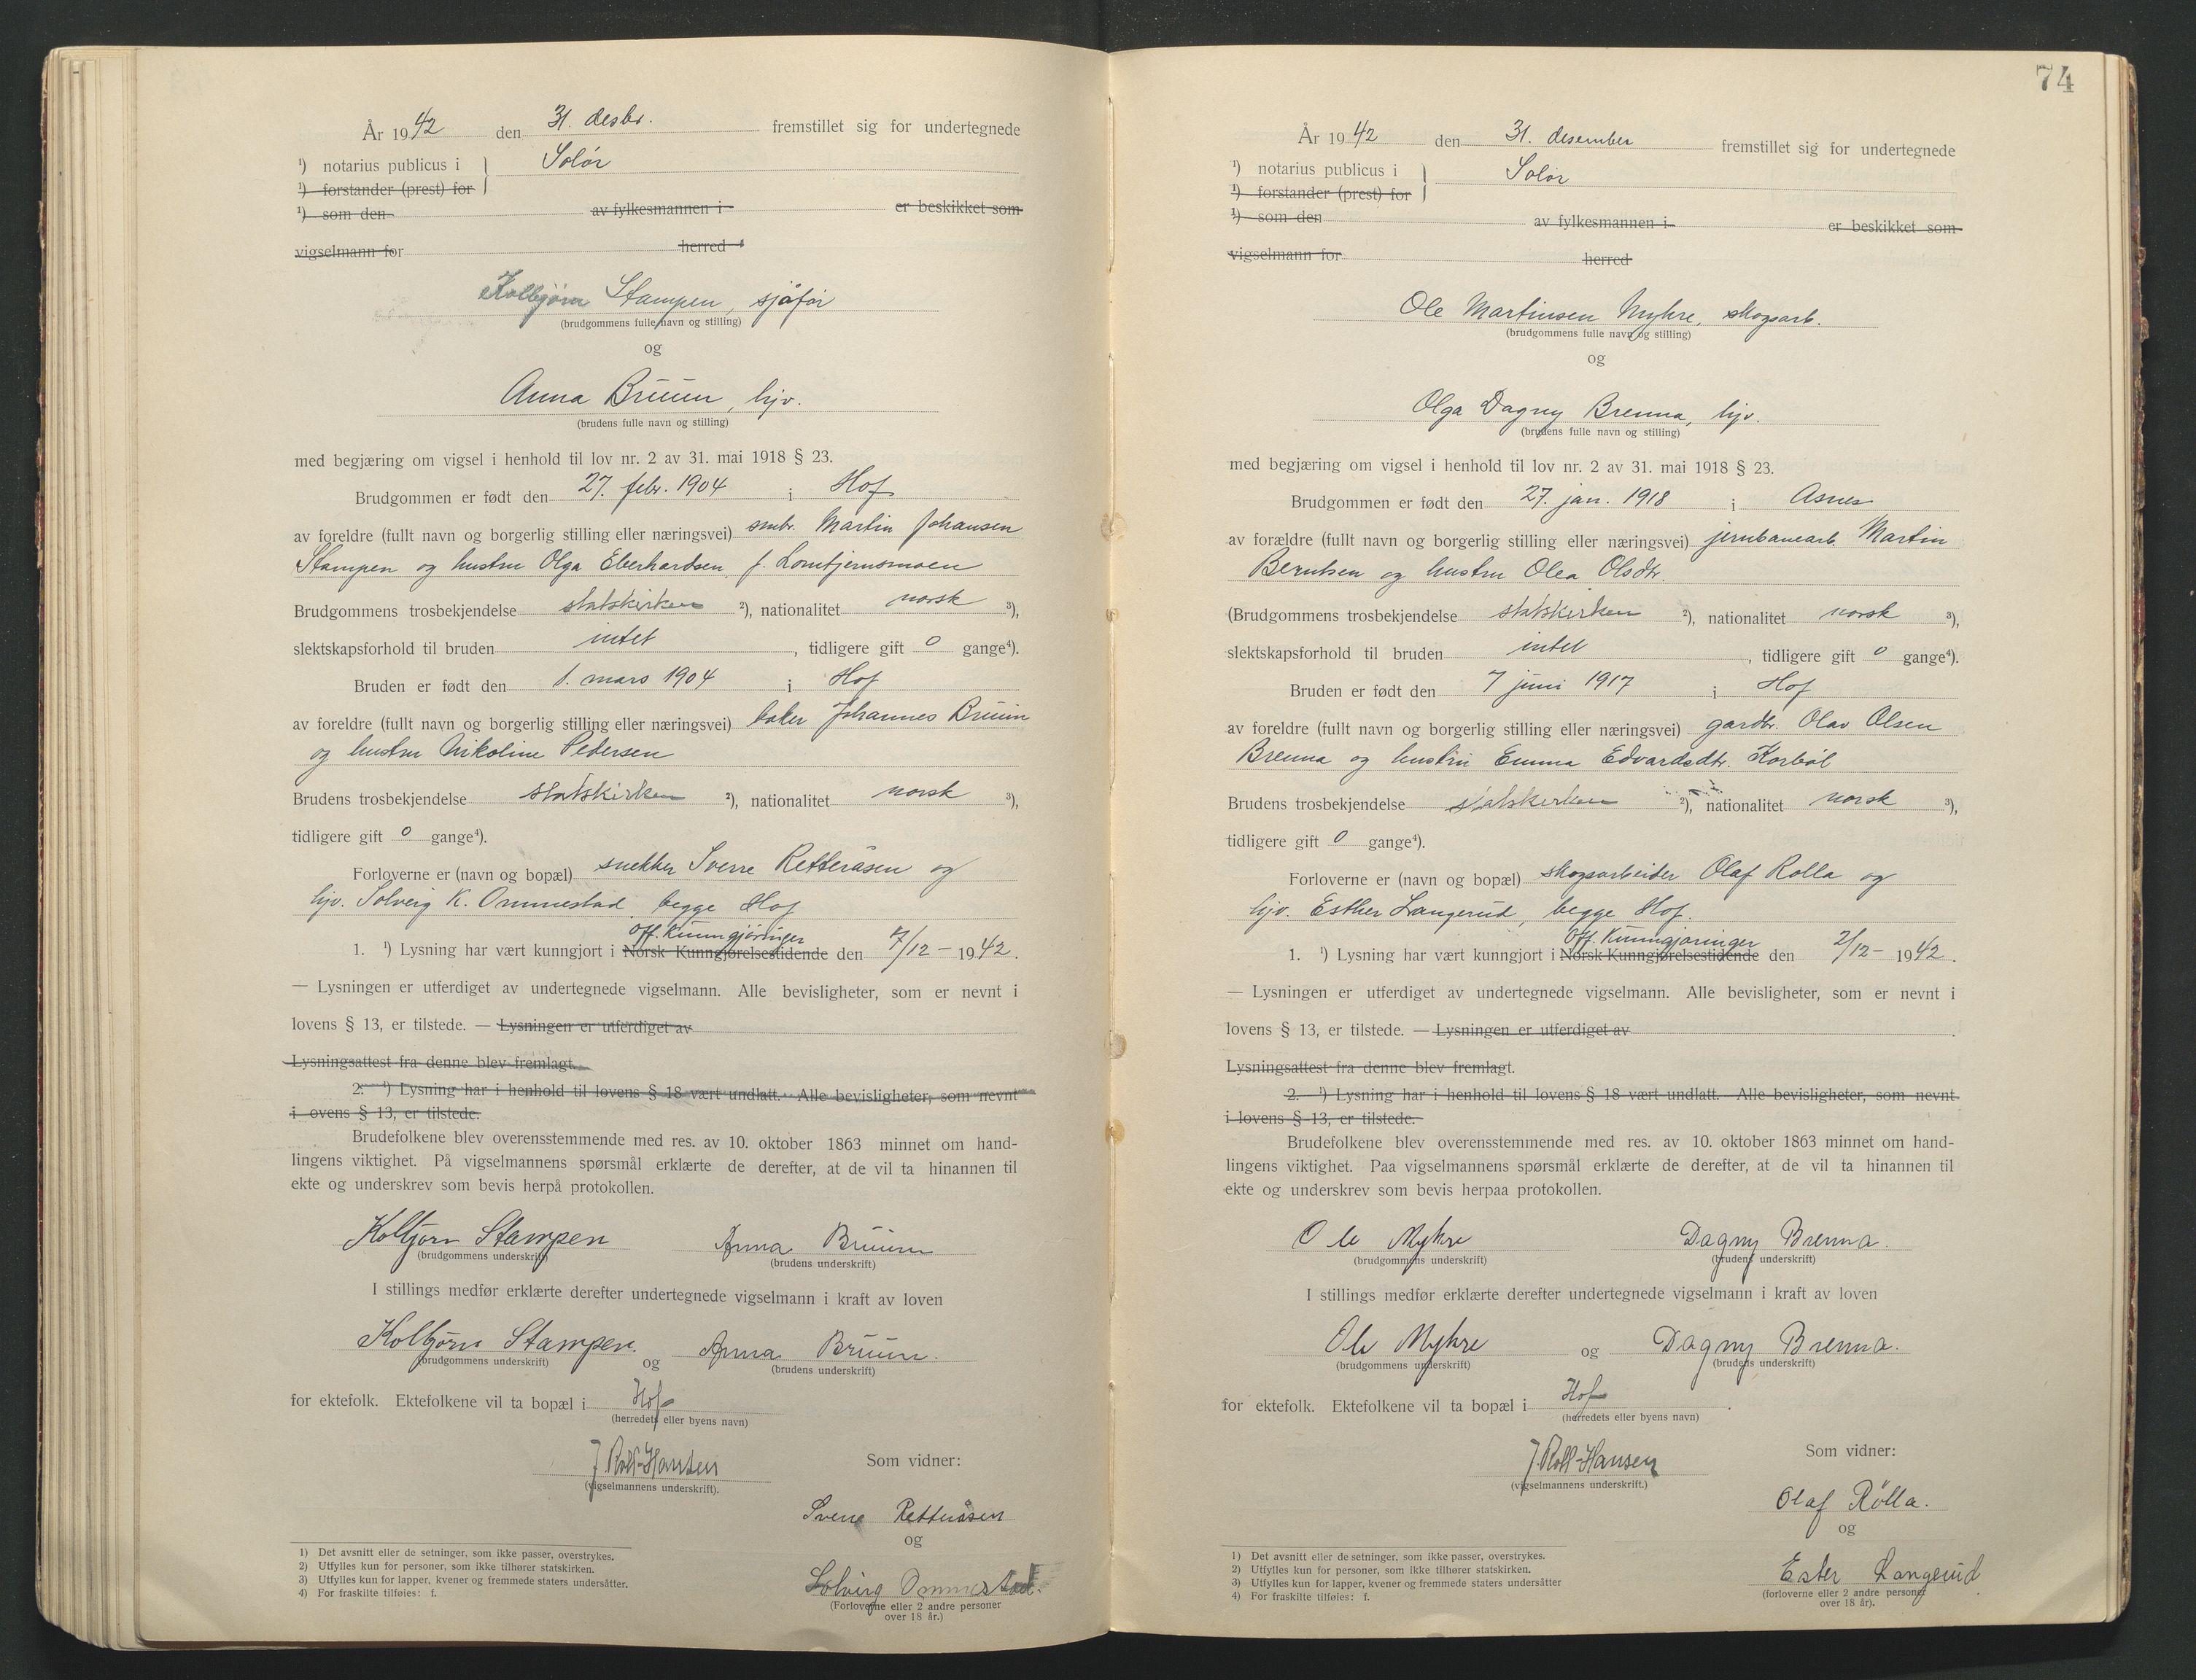 År 1942 den 31. desbr. fremstillet sig for undertegnede
¹) notarius publicus i } Solør
¹) forstander (prest) for
¹) som den av fylkesmannen i er beskikket som
vigselmann for herred
Kolbjørn Stampen, sjåfør
(brudgommens fulle navn og stilling)
og
Anna Bruun, hjv.
(brudens fulle navn og stilling)
med begjæring om vigsel i henhold til lov nr. 2 av 31. mai 1918 § 23.
Brudgommen er født den 27. febr. 1904 i Hof
av foreldre (fullt navn og borgerlig stilling eller næringsvei) smbr. Martin Johansen
Stampen og hustru Olga Eberhardsen, f. Lomtjernsmoen
Brudgommens trosbekjendelse statskirken ²), nationalitet norsk ³),
slektskapsforhold til bruden intet , tidligere gift 0 gange⁴).
Bruden er født den 1. mars 1904 i Hof
av foreldre (fullt navn og borgerlig stilling eller næringsvei) baker Johannes Bruun
og hustru Nikoline Pedersen
Brudens trosbekjendelse statskirken ²), nationalitet norsk ³),
tidligere gift 0 gange⁴).
Forloverne er (navn og bopæl) snekker Sverre Retteråsen og
hjv. Solveig K. Ommestad, begge Hof
Off. Kunngjøringer
1. ¹) Lysning har vært kunngjort i Norsk Kunngjørelsestidende den 7/12 - 1942.
— Lysningen er utferdiget av undertegnede vigselmann. Alle bevisligheter, som er nevnt i
lovens § 13, er tilstede. — Lysningen er utferdiget av
Lysningsattest fra denne blev fremlagt.
2. ¹) Lysning har i henhold til lovens § 18 vært undlatt. Alle bevisligheter, som nevnt
i ovens § 13, er tilstede.
Brudefolkene blev overensstemmende med res. av 10. oktober 1863 minnet om hand-
lingens viktighet. På vigselmannens spørsmål erklærte de derefter, at de vil ta hinannen til
ekte og underskrev som bevis herpå protokollen.
Kolbjørn Stampen Anna Bruun
(brudgommens underskrift) (brudens underskrift)
I stillings medfør erklærte derefter undertegnede vigselmann i kraft av loven
Kolbjørn Stampen. og Anna Bruun.
(brudgommens underskrift) (brudens underskrift)
for ektefolk. Ektefolkene vil ta bopæl i Hof
(herredets eller byens navn)
J. Rolf-Hansen Som vidner:
(vigselmannens underskrift).
Sverre Retteråsen
og
Solveig Ommestad.
(Forloverne eller 2 andre personer
over 18 år.)
1) Det avsnitt eller de setninger, som ikke passer, overstrykes.
2) Utfylles kun for personer, som ikke tilhører statskirken.
3) Utfylles kun for lapper, kvener og fremmede staters undersåtter.
4) For fraskilte tilføies: f.
74
År 1942 den 31. desember fremstillet sig for undertegnede
¹) notarius publicus i } Solør
¹) forstander (prest) for
¹) som den av fylkesmannen i er beskikket som
vigselmann for herred
Ole Martinsen Myhre, skogsarb.
(brudgommens fulle navn og stilling)
og
Olga Dagny Brenna, hjv.
(brudens fulle navn og stilling)
med begjæring om vigsel i henhold til lov nr. 2 av 31. mai 1918 § 23.
Brudgommen er født den 27. jan. 1918 i Åsnes
av forældre (fullt navn og borgerlig stilling eller næringsvei) jernbanearb. Martin
Berntsen og hustru Olea Olsdtr.
(Brudgommens trosbekjendelse statskirken ²), nationalitet norsk ³),
slektskapsforhold til bruden intet , tidligere gift 0 gange⁴).
Bruden er født den 7 juni 1917 i Hof
av foreldre (fullt navn og borgerlig stilling eller næringsvei) gardbr. Olav Olsen
Brenna og hustru Emma Edvardsdtr. Korbøl
Brudens trosbekjendelse statskirken ²), nationalitet norsk ³),
tidligere gift 0 gange⁴).
Forloverne er (navn og bopæl) skogsarbeider Olaf Rolla og
hjv. Esther Langerud, begge Hof.
Off. Kunngjøringer
1. ¹) Lysning har vært kunngjort i Norsk Kunngjørelsestidende den 2/12 - 1942.
— Lysningen er utferdiget av undertegnede vigselmann. Alle bevisligheter, som er nevnt i
lovens § 13, er tilstede. — Lysningen er utferdiget av .
Lysningsattest fra denne blev fremlagt.
2. ¹) Lysning har i henhold til lovens § 18 vært undlatt. Alle bevisligheter, som nevnt
i lovens § 13, er tilstede.
Brudefolkene blev overensstemmende med res. av 10. oktober 1863 minnet om hand-
lingens viktighet. Paa vigselmannens spørsmål erklærte de derefter, at de vil ta hinannen til
ekte og underskrev som bevis herpaa protokollen.
Ole Myhre Dagny Brenna.
(brudgommens underskrift) (brudens underskrift)
I stillings medfør erklærte derefter undertegnede vigselmann i kraft av loven
Ole Myhre og Dagny Brenna.
(brudgommens underskrift) (brudens underskrift)
for ektefolk. Ektefolkene vil ta bopæl i Hof .
(herredets eller byens navn)
J. Rolf-Hansen Som vidner:
(vigselmannens underskrift.)
Olaf Rølla.
og
Ester Langerud
(forloverne eller 2 andre personer
over 18 år).
1) Det avsnitt eller de setninger, som ikke passer, overstrykes.
2) Utfylles kun for personer, som ikke tilhører statskirken.
3) Utfylles kun for lapper, kvener og fremmede staters undersåtter
4) For fraskilte tilføies: f.